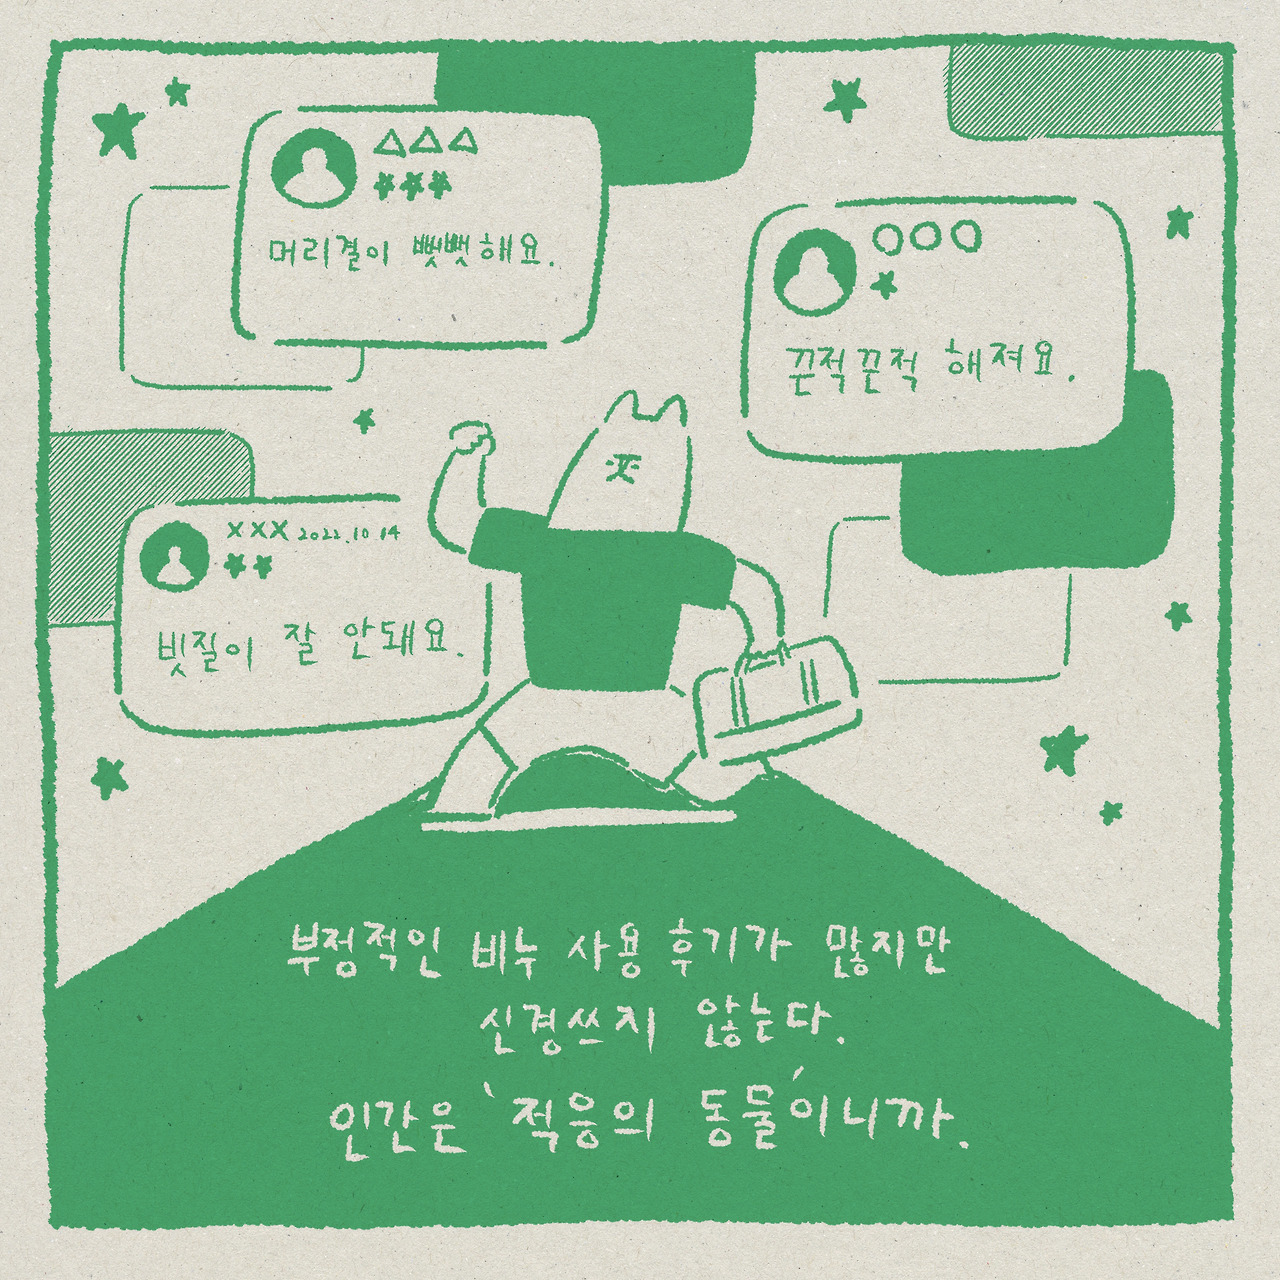 △△△
머리결이 뻣뻣해요.
○○○
끈적끈적 해져요.
XXX 2022.10 14
빗질이 잘 안돼요.
부정적인 비누 사용 후기가 많지만
신경쓰지 않는다.
인간은 '적응의 동물'이니까.